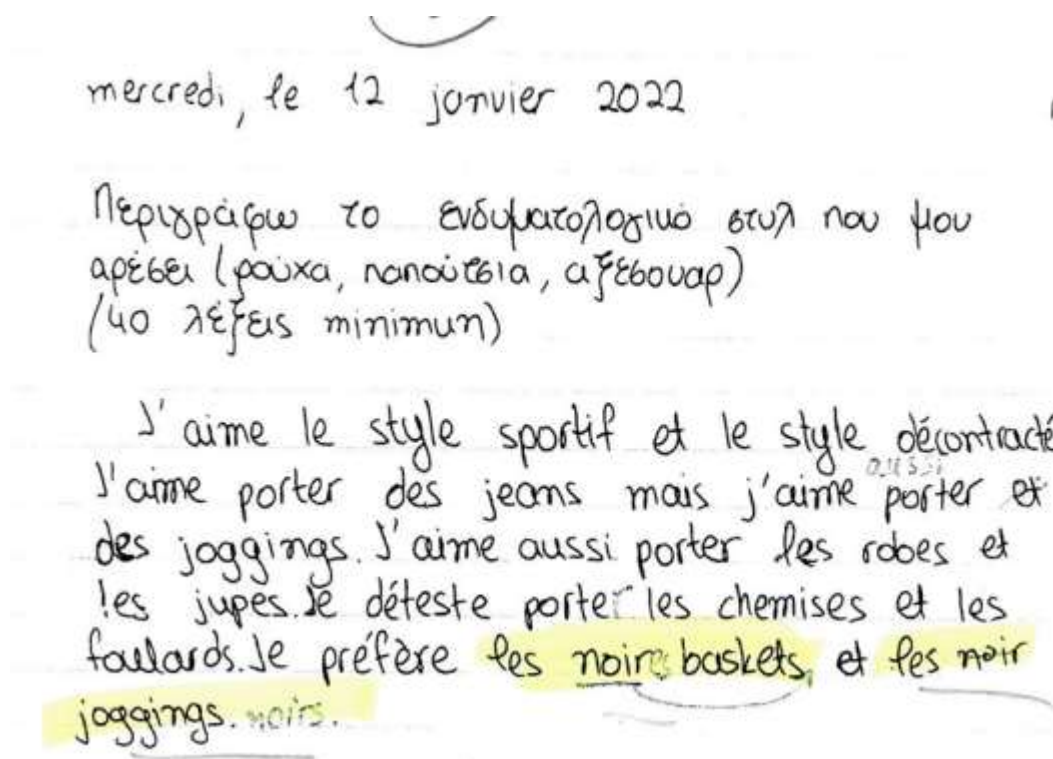 mercredi, le 12 janvier 2022
Περιγράφω το ενδυματολογικό στυλ που μου
αρέσει (ρούχα, παπούτσια, αξεσουάρ)
(40 λέξεις minimun)
J'aime le style sportif et le style décontracté
aussi
J'aime porter des jeans mais j'aime porter et
des joggings. J'aime aussi porter les robes et
les jupes. Je déteste porter les chemises et les
foulards. Je préfère les noires baskets, et les noir
joggings. noirs.